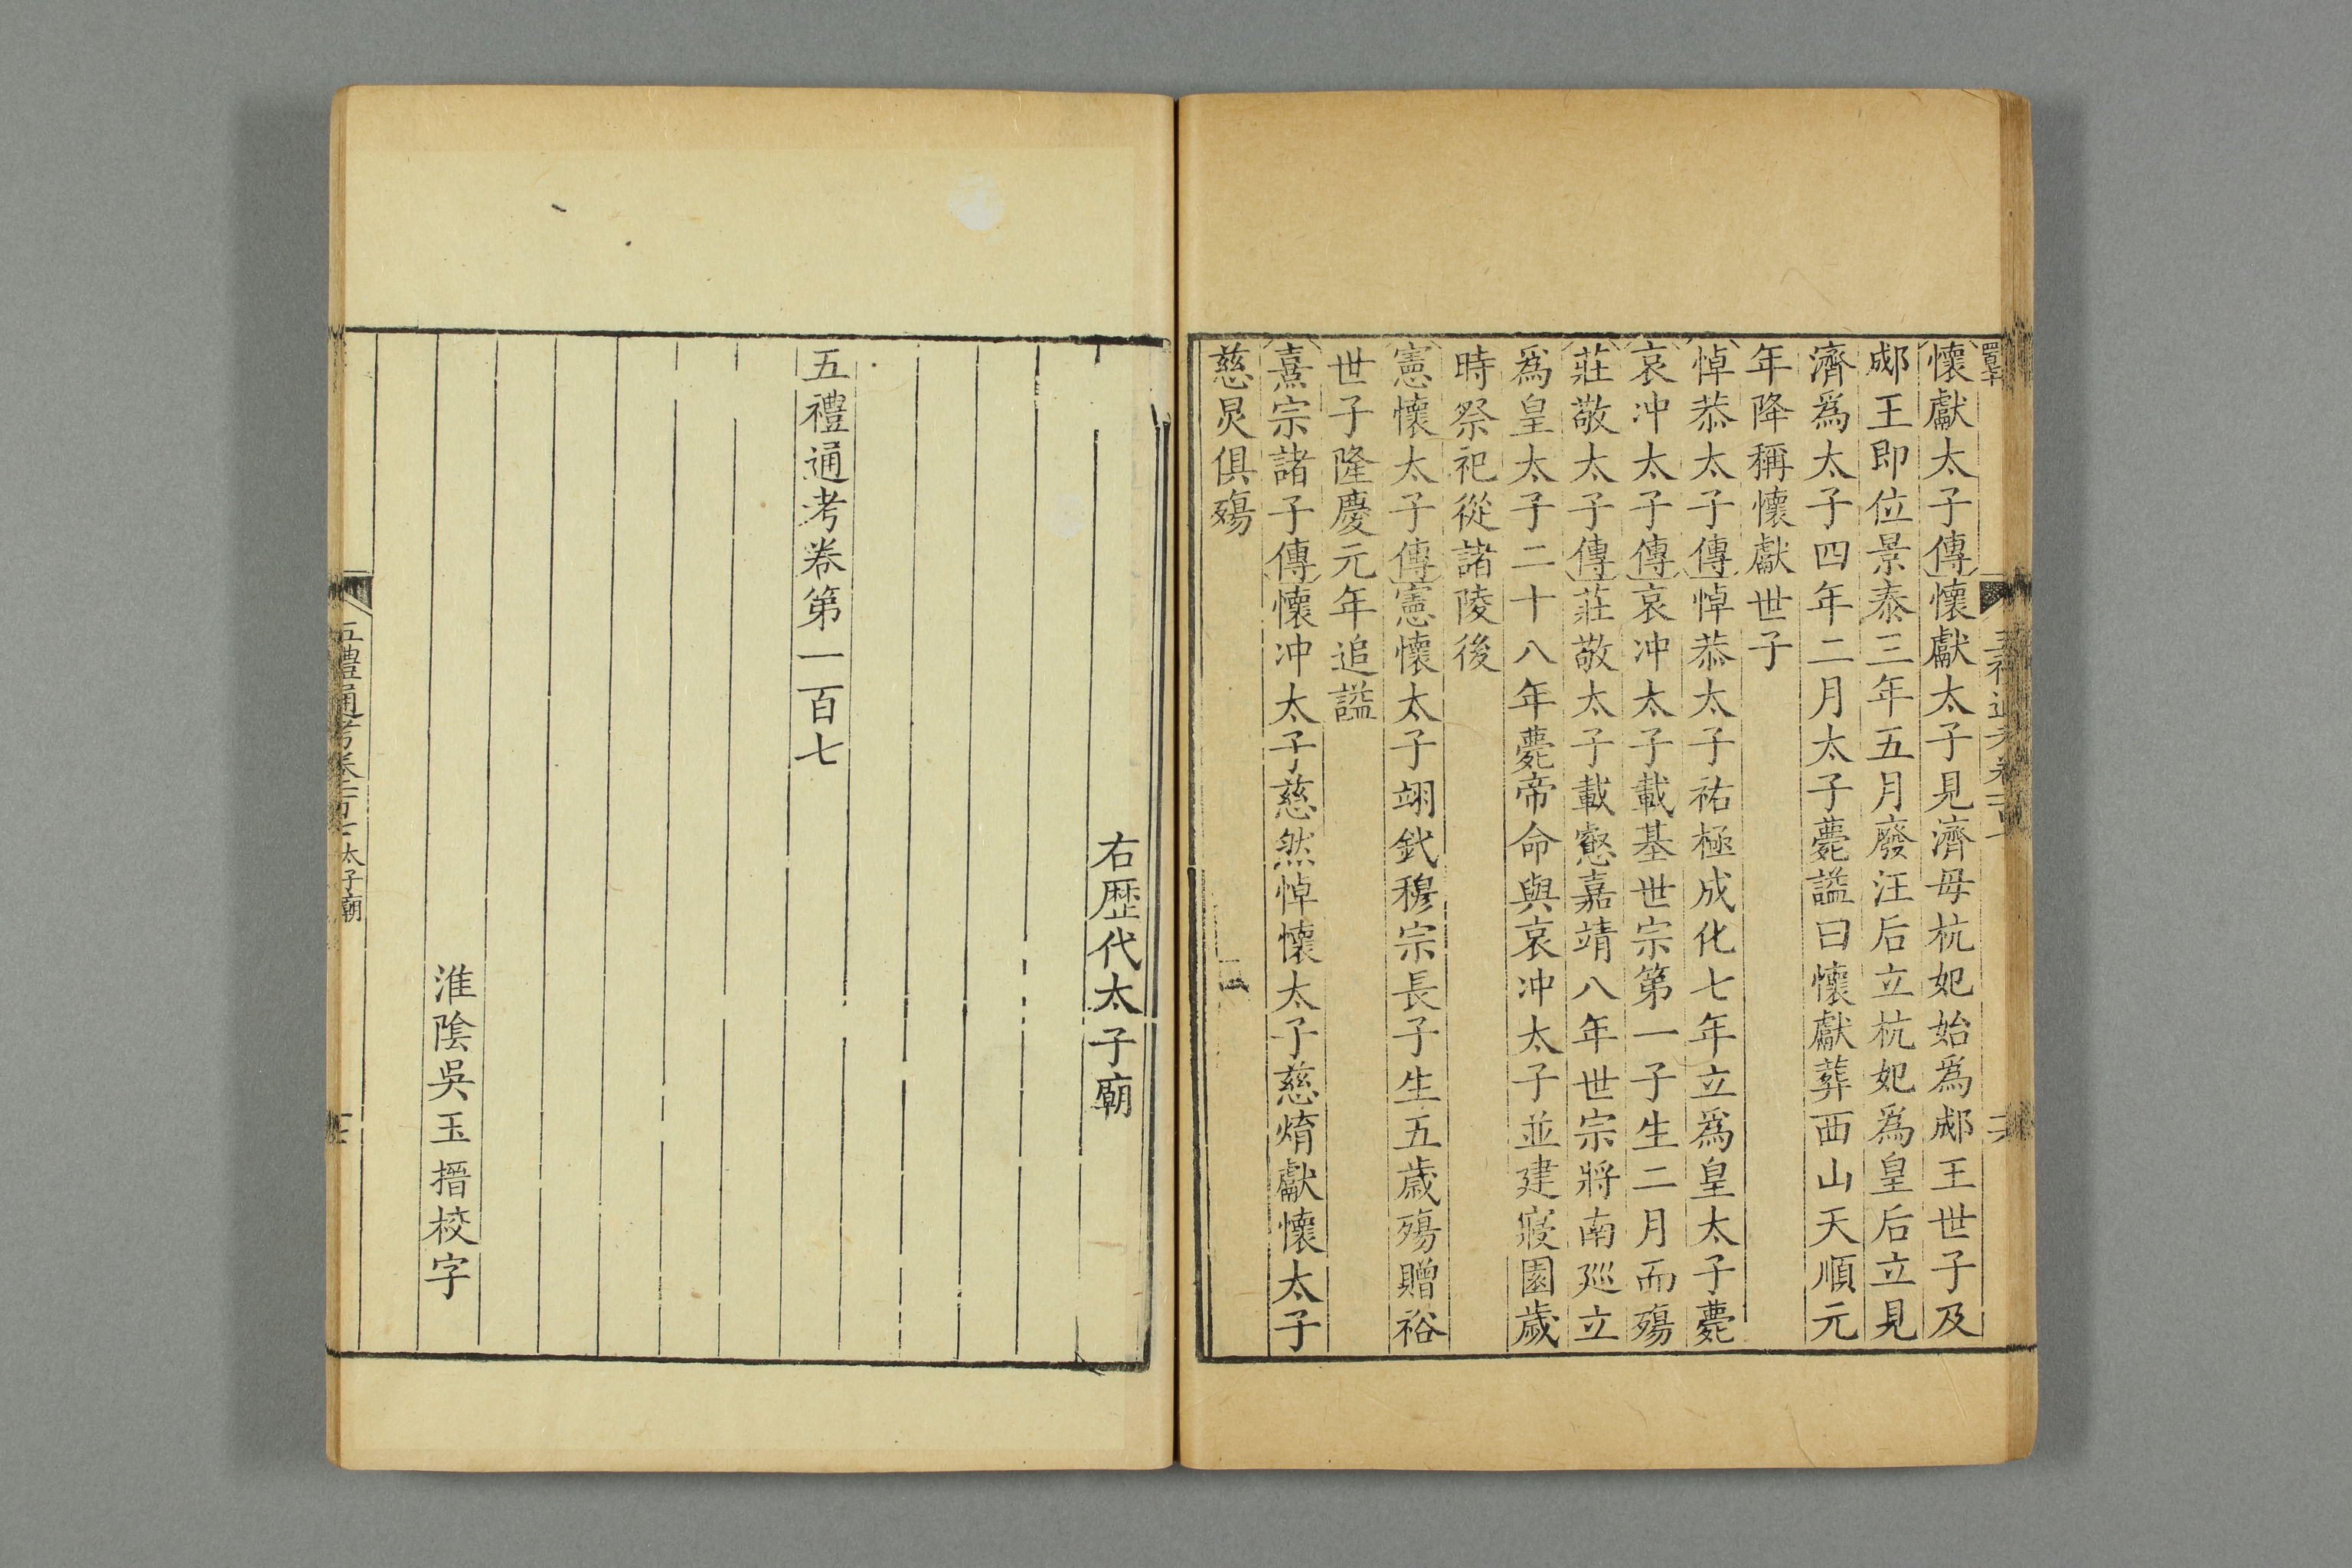 懷獻太子傳懷獻太子見濟母杭妃始爲郕王世子及
郕王即位景泰三年五月廢汪后立杭妃爲皇后立見
濟爲太子四年二月太子薨諡曰懷獻葬西山天順元
年降稱懷獻世子
悼恭太子傳悼恭太子祐極成化七年立爲皇太子薨
哀冲太子傳哀冲太子載基世宗第一子生二月而殤
莊敬太子傳莊敬太子載壑嘉靖八年世宗將南廵立
爲皇太子二十八年薨帝命與哀冲太子並建寢園歲
時祭祀從諸陵後
憲懷太子傳憲懷太子翊釴穆宗長子生五歲殤贈裕
世子隆慶元年追諡
熹宗諸子傳懷冲太子慈然悼懷太子慈焴獻懷太子
慈炅俱殤
右歷代太子廟
五禮通考卷第一百七
淮陰吳玉搢校字
五禮通考卷一百七 太子廟